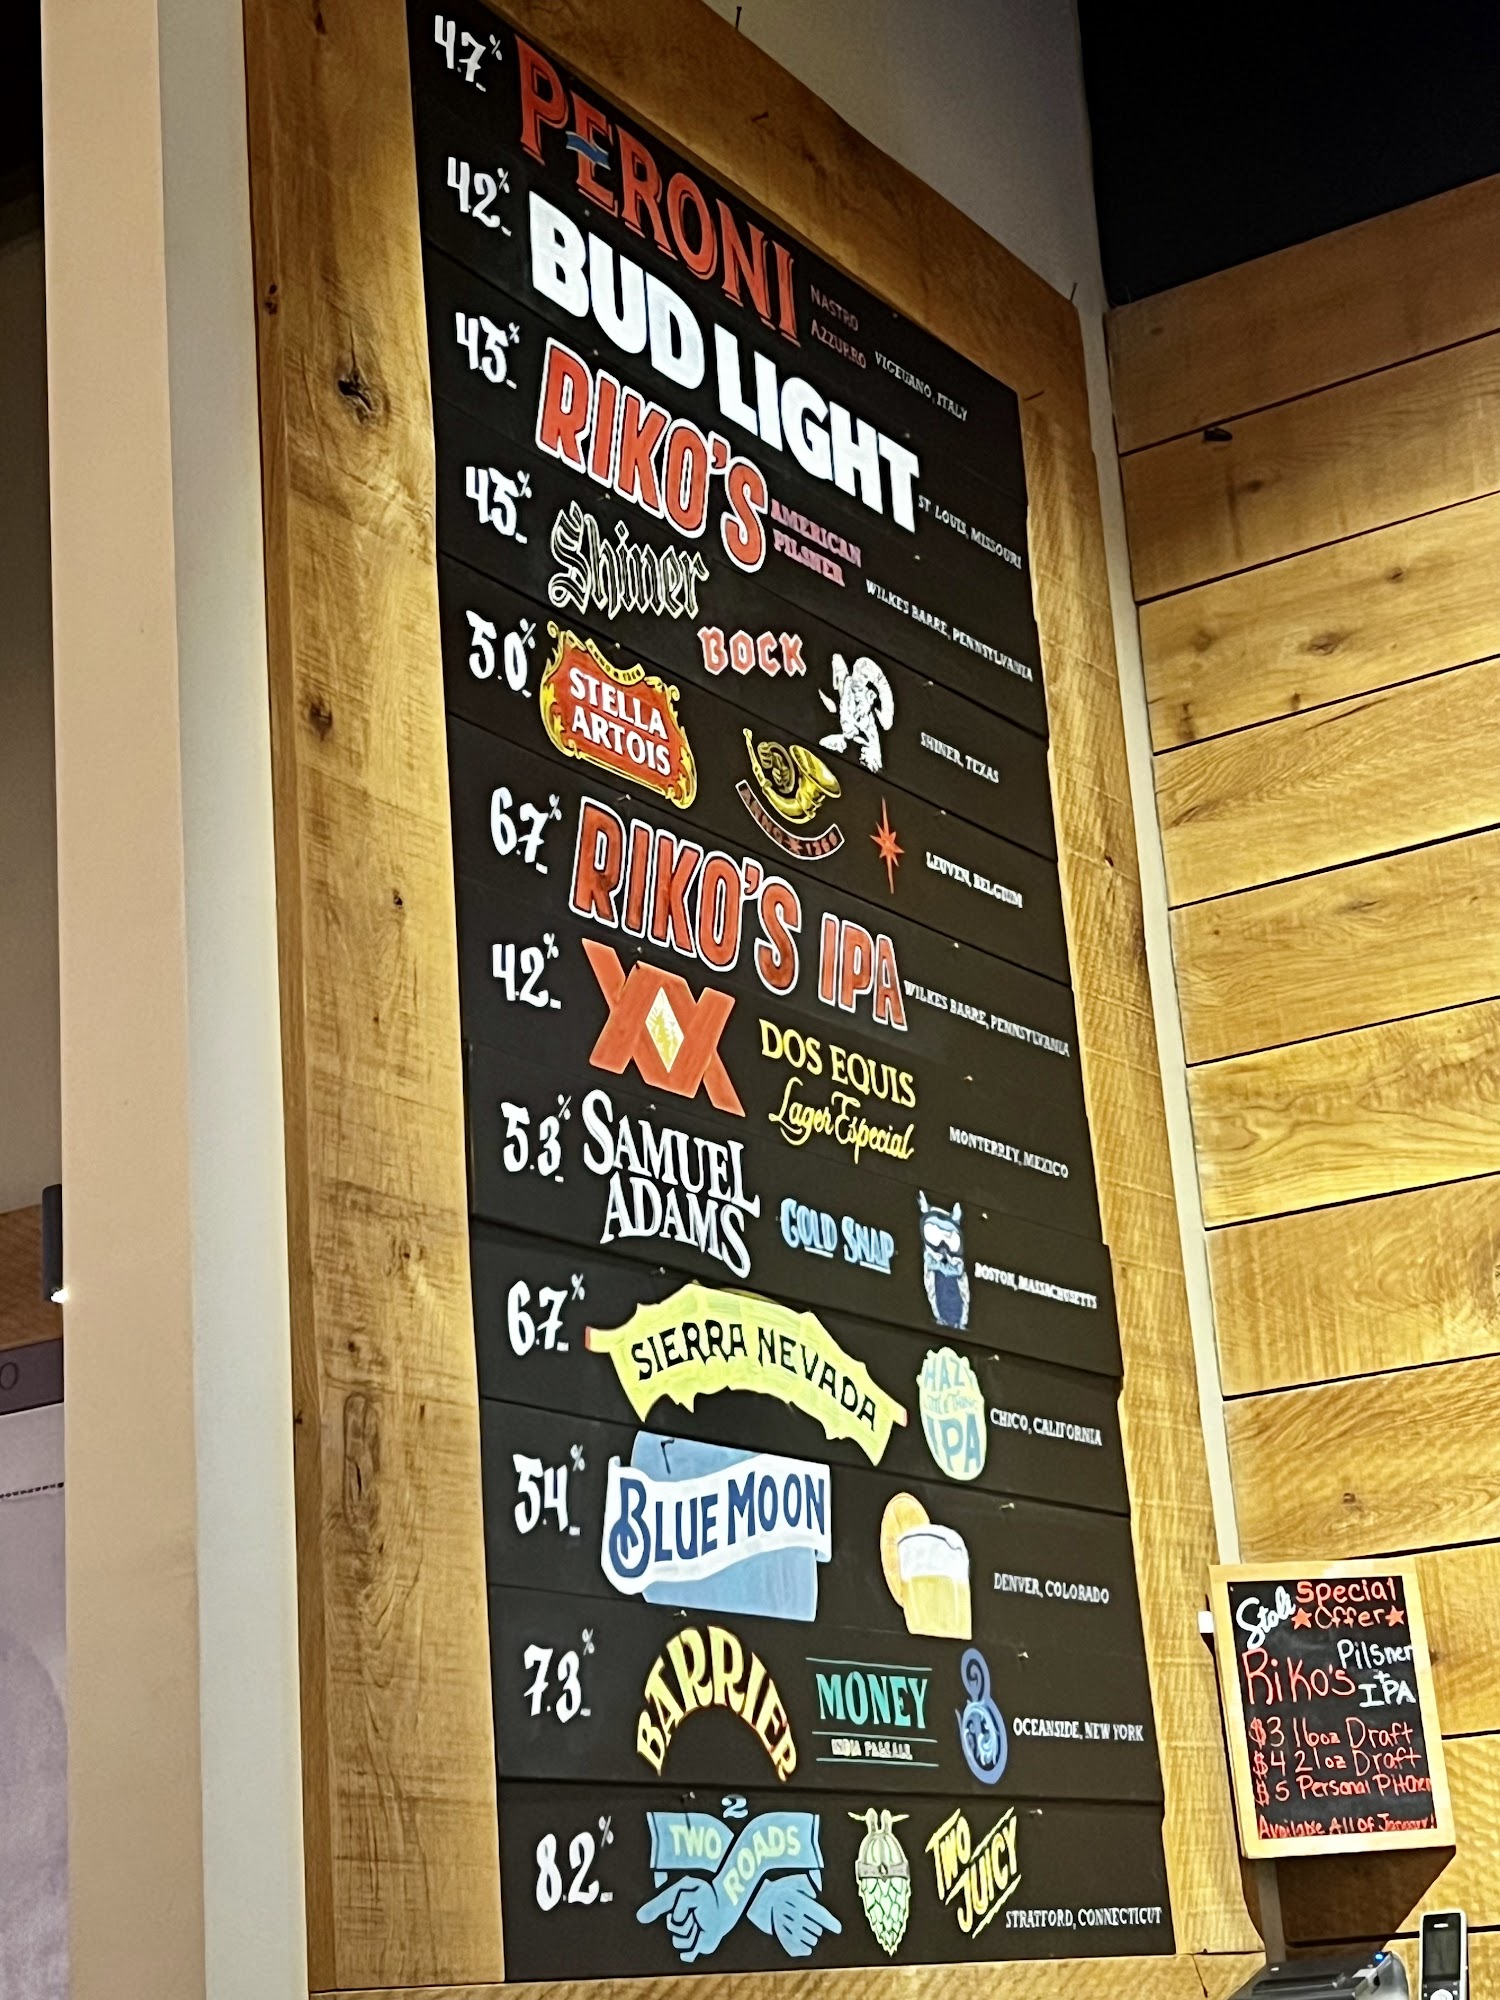 4.7% PERONI NASTRO AZZURRO VIGEVANO, ITALY
4.2% BUD LIGHT ST. LOUIS, MISSOURI
4.5% RIKO'S AMERICAN PILSNER WILKES BARRE, PENNSYLVANIA
4.5% Shiner BOCK SHINER, TEXAS
5.0% STELLA ARTOIS ANNO 1366 LEUVEN, BELGIUM
6.7% RIKO'S IPA WILKES BARRE, PENNSYLVANIA
4.2% XX DOS EQUIS Lager Especial MONTERREY, MEXICO
5.3% SAMUEL ADAMS COLD SNAP BOSTON, MASSACHUSETTS
6.7% SIERRA NEVADA HAZY LITTLE THING IPA CHICO, CALIFORNIA
5.4% BLUE MOON DENVER, COLORADO
7.3% BARRIER MONEY INDIA PALE ALE OCEANSIDE, NEW YORK
8.2% 2 TWO ROADS TWO JUICY STRATFORD, CONNECTICUT
Special
Offer
Riko's Pilsner + IPA
$3 16oz Draft
$4 21oz Draft
$5 Personal Pitcher
Available All Of January!